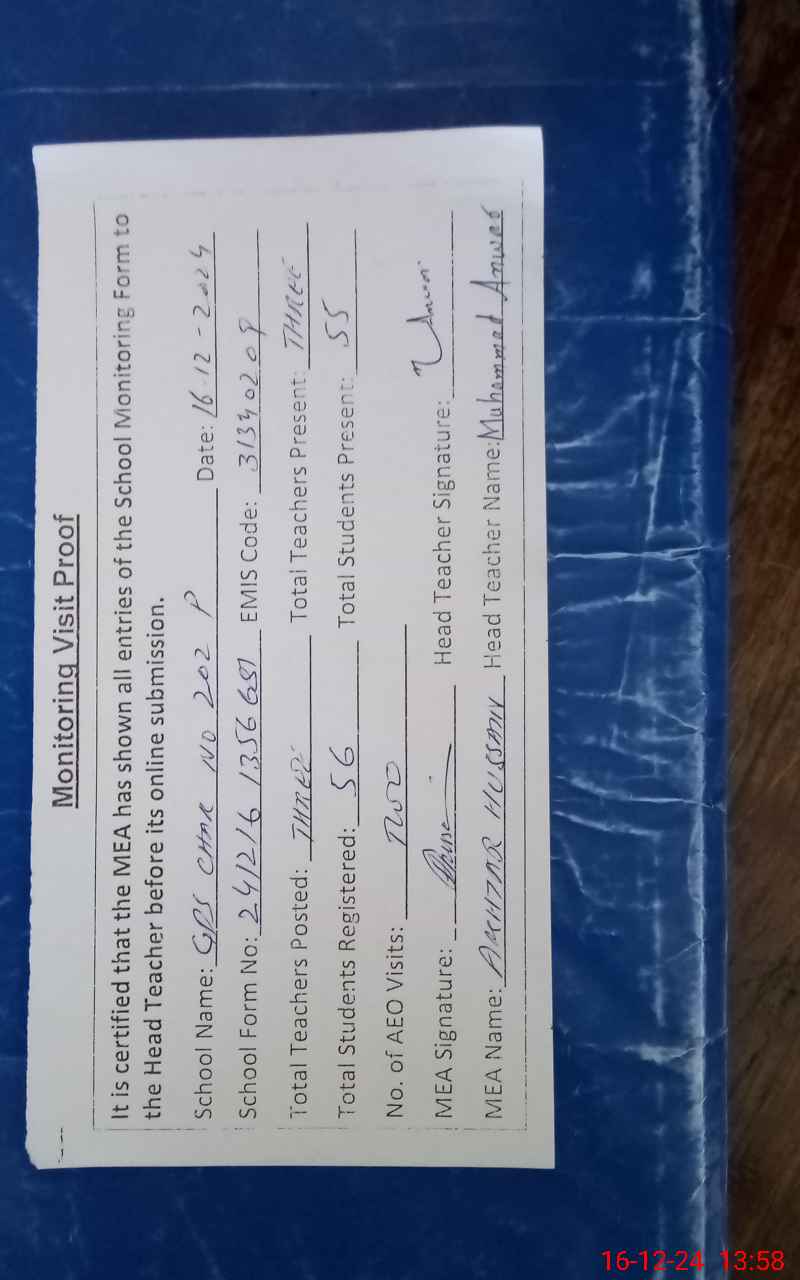 Monitoring Visit Proof
It is certified that the MEA has shown all entries of the School Monitoring Form to
the Head Teacher before its online submission.
School Name: GPS CHAK NO 202 P Date: 16-12-2024
School Form No: 241216 1356 651 EMIS Code: 31340209
Total Teachers Posted: THREE Total Teachers Present: THREE
Total Students Registered: 56 Total Students Present: 55
No. of AEO Visits: TWO
MEA Signature: Head Teacher Signature:
MEA Name: AKHTAR HUSSAIN Head Teacher Name: Muhammad Anwar
16-12-24 13:58